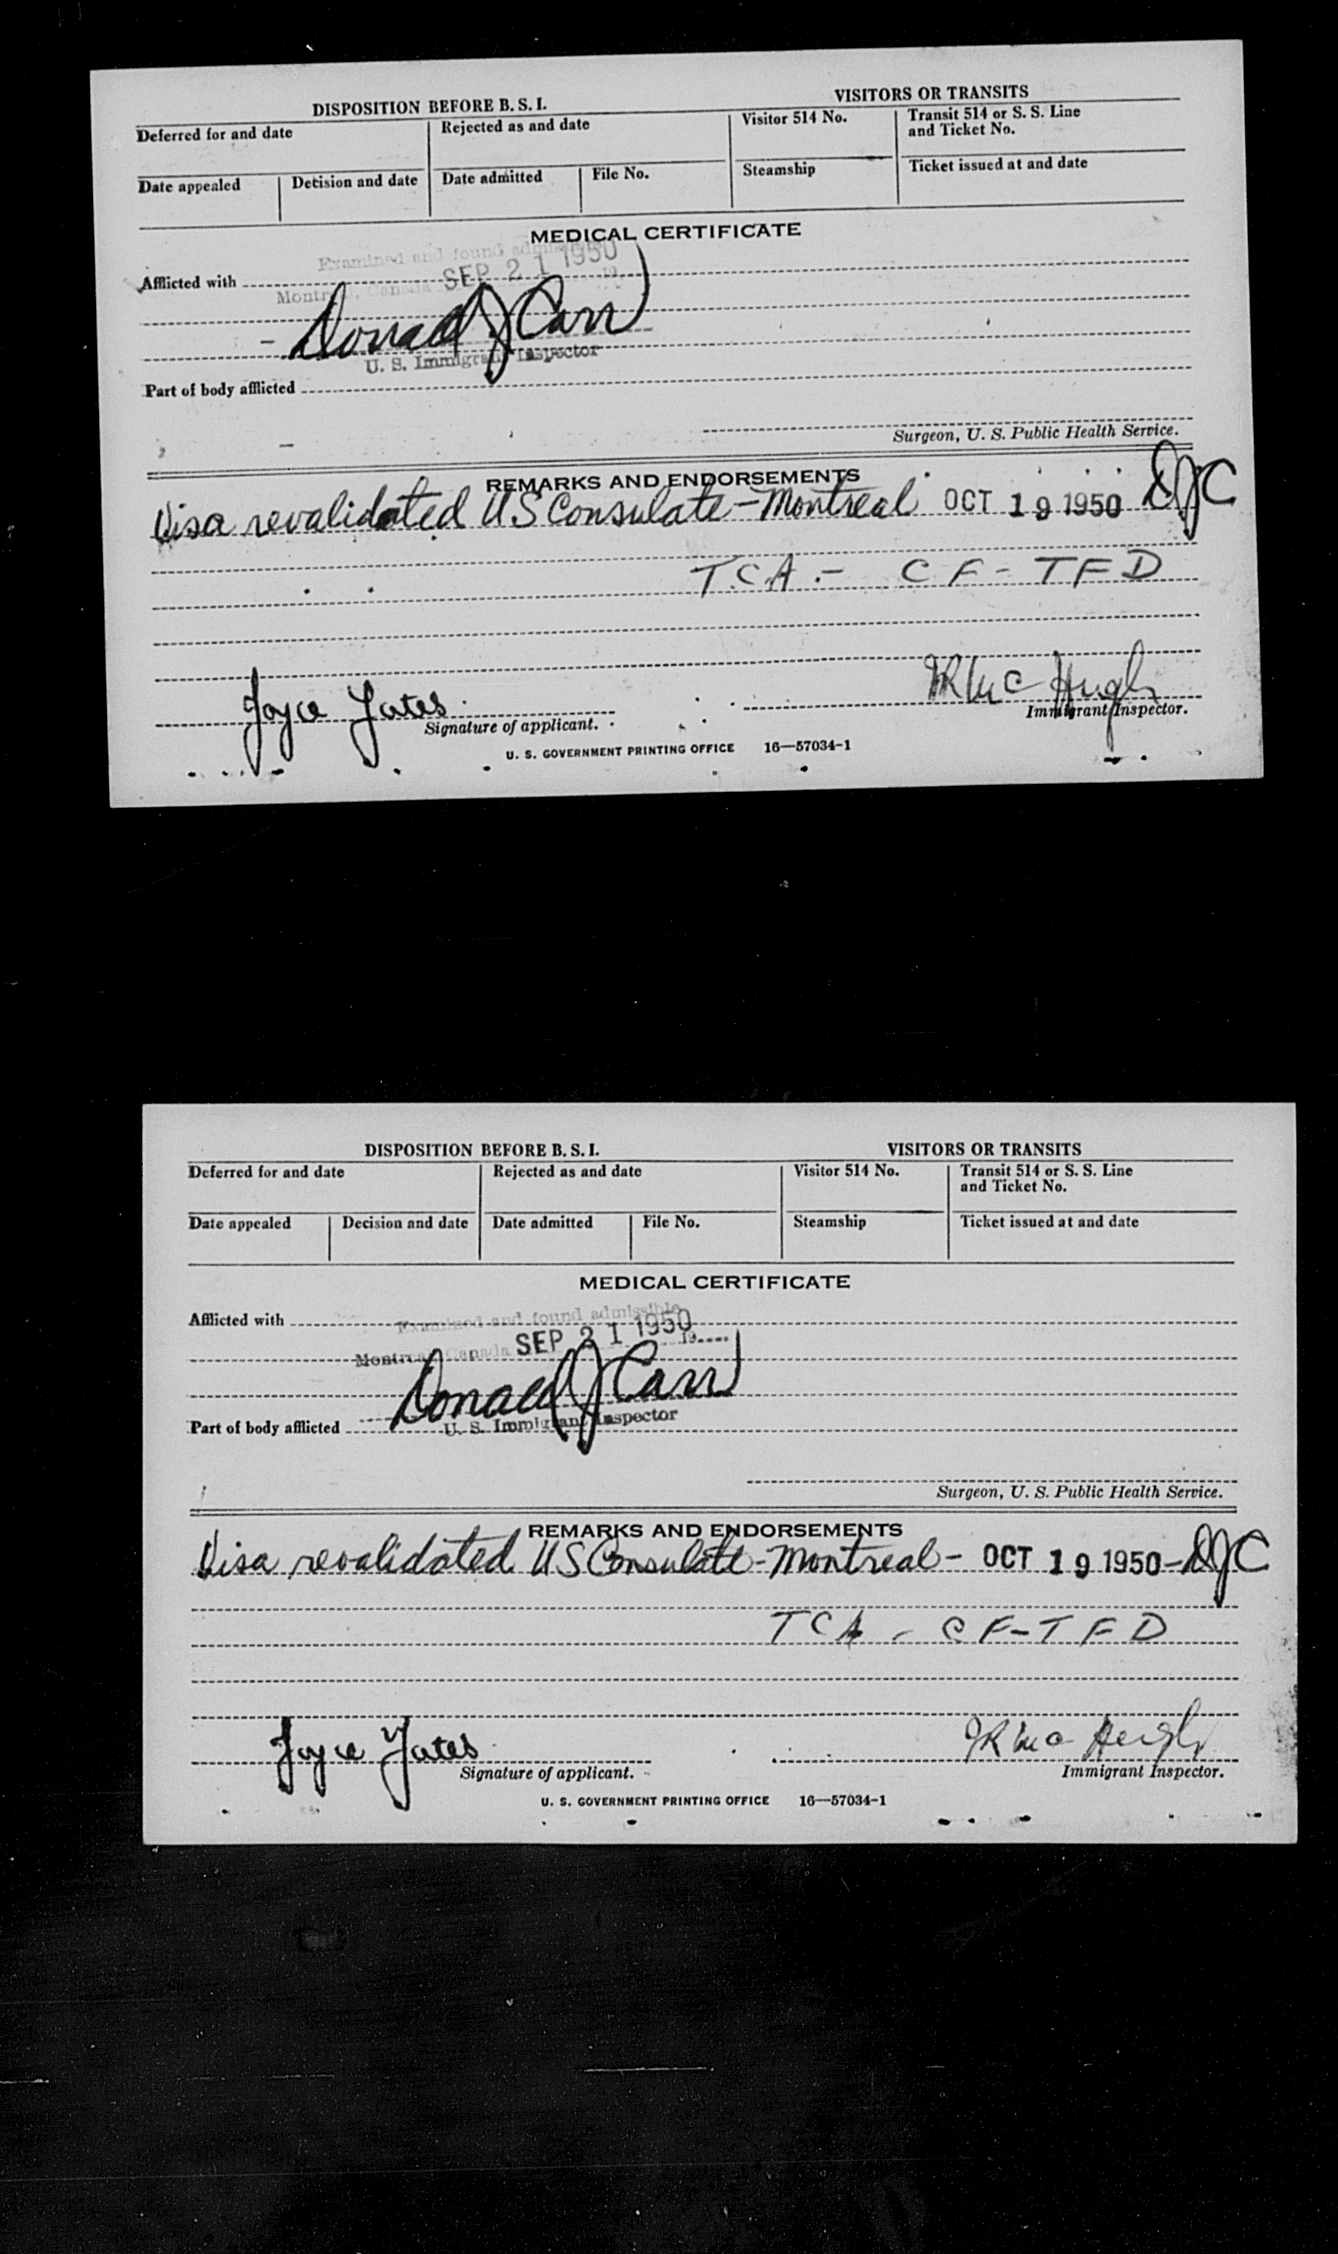 DISPOSITION BEFORE B. S. I. VISITORS OR TRANSITS
Deferred for and date Rejected as and date Visitor 514 No. Transit 514 or S. S. Line
and Ticket No.
Date appealed Decision and date Date admitted File No. Steamship Ticket issued at and date
MEDICAL CERTIFICATE
Examined and found admissible
Afflicted with SEP 21 1950
Montreal, Canada 19
Donald J Carr
U. S. Immigrant Inspector
Part of body afflicted
Surgeon, U. S. Public Health Service.
REMARKS AND ENDORSEMENTS
Visa revalidated US Consulate - Montreal OCT 19 1950 DJC
TCA - CF-TFD
Joyce Yates McHugh
Signature of applicant. Immigrant Inspector.
U. S. GOVERNMENT PRINTING OFFICE 16—57034-1
DISPOSITION BEFORE B. S. I. VISITORS OR TRANSITS
Deferred for and date Rejected as and date Visitor 514 No. Transit 514 or S. S. Line
and Ticket No.
Date appealed Decision and date Date admitted File No. Steamship Ticket issued at and date
MEDICAL CERTIFICATE
Examined and found admissible
Afflicted with SEP 21 1950
Montreal, Canada 19
Donald J Carr
U. S. Immigrant Inspector
Part of body afflicted
Surgeon, U. S. Public Health Service.
REMARKS AND ENDORSEMENTS
Visa revalidated US Consulate - Montreal - OCT 19 1950 - DJC
TCA - CF-TFD
Joyce Yates McHugh
Signature of applicant. Immigrant Inspector.
U. S. GOVERNMENT PRINTING OFFICE 16—57034-1